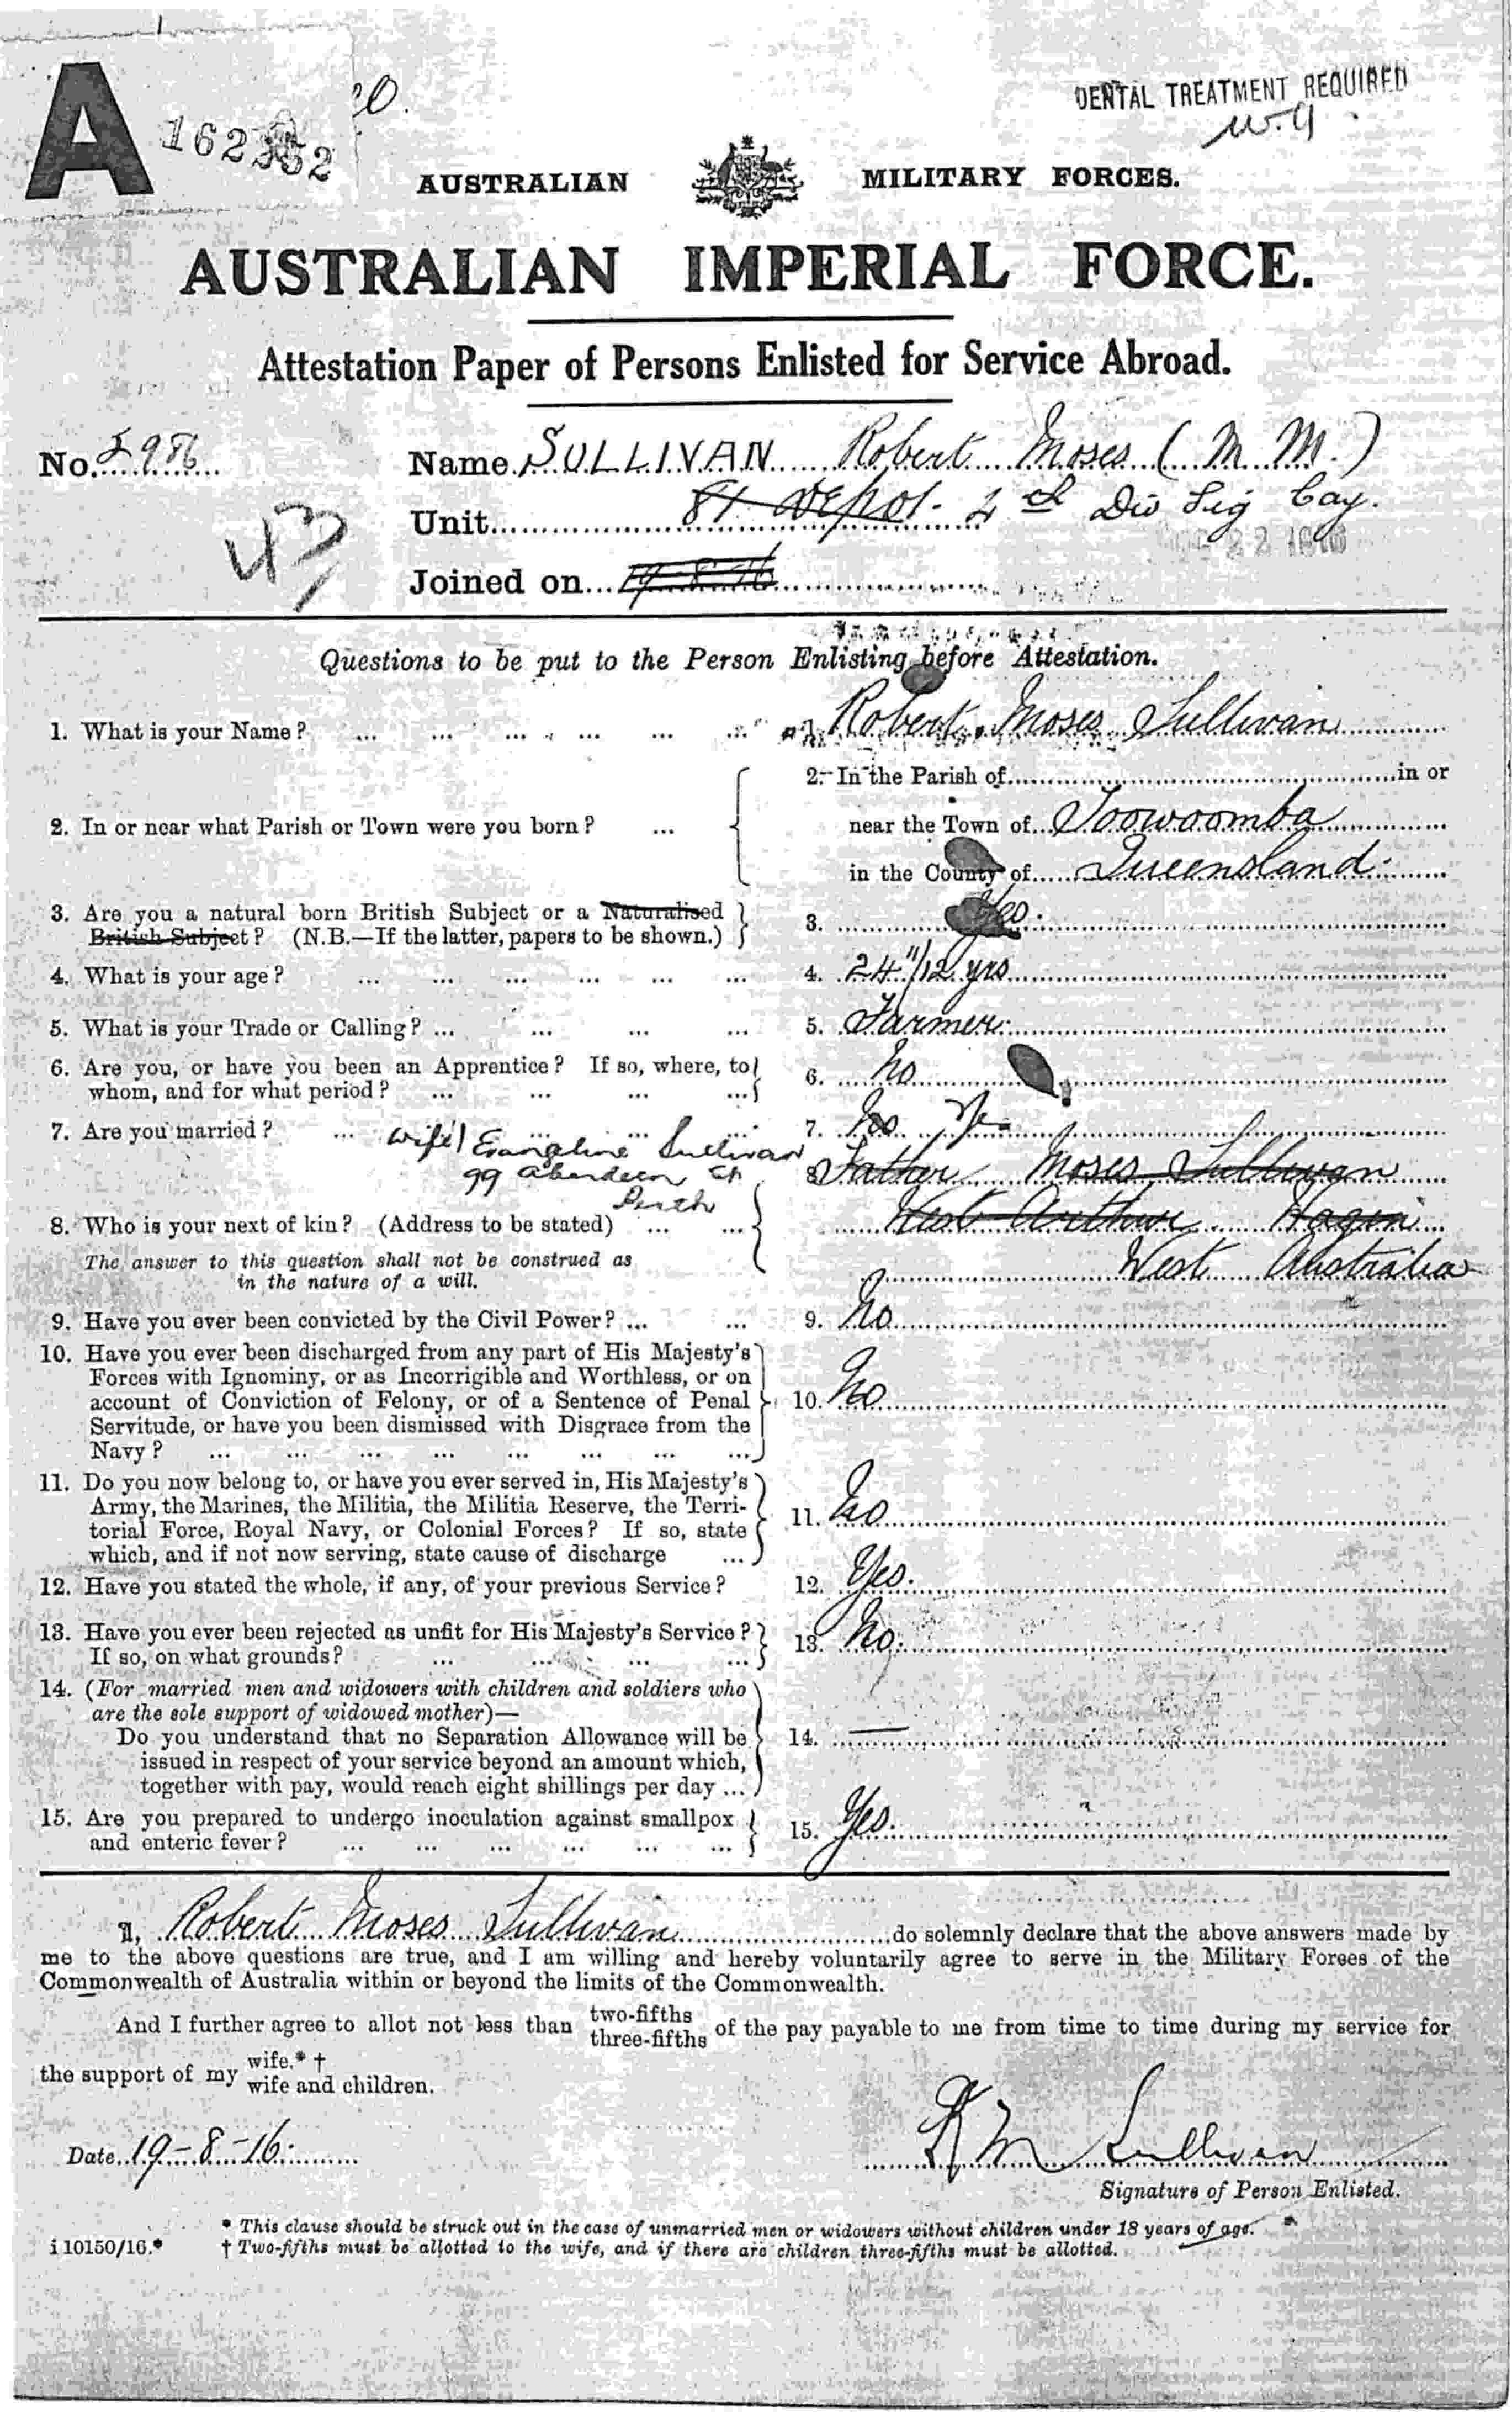 A
DENTAL TREATMENT REQUIRED
AUSTRALIAN MILITARY FORCES.
AUSTRALIAN IMPERIAL FORCE.
Attestation Paper of Persons Enlisted for Service Abroad.
No. 5986 Name SULLIVAN Robert Moses (M.M.)
Unit 81 Depot. 4th Div Sig Coy.
Joined on 19-8-16
Questions to be put to the Person Enlisting before Attestation.
1. What is your Name? ... Robert Moses Sullivan
2. In the Parish of in or
2. In or near what Parish or Town were you born? ... near the Town of Toowoomba
in the County of Queensland.
3. Are you a natural born British Subject or a Naturalised
British Subject? (N.B.—If the latter, papers to be shown.) 3. Yes.
4. What is your age? ... 4. 24 11/12 yrs
5. What is your Trade or Calling? ... 5. Farmer.
6. Are you, or have you been an Apprentice? If so, where, to
whom, and for what period? ... 6. No
7. Are you married? ... 7. No Yes
Wife) Evangeline Sullivan
99 Aberdeen St
Perth
8. Father Moses Sullivan
8. Who is your next of kin? (Address to be stated) ... West Arthur Wagin
The answer to this question shall not be construed as
in the nature of a will.
West Australia
9. Have you ever been convicted by the Civil Power? ... 9. No
10. Have you ever been discharged from any part of His Majesty's
Forces with Ignominy, or as Incorrigible and Worthless, or on
account of Conviction of Felony, or of a Sentence of Penal 10. No
Servitude, or have you been dismissed with Disgrace from the
Navy? ...
11. Do you now belong to, or have you ever served in, His Majesty's
Army, the Marines, the Militia, the Militia Reserve, the Terri-
torial Force, Royal Navy, or Colonial Forces? If so, state 11. No
which, and if not now serving, state cause of discharge ...
12. Have you stated the whole, if any, of your previous Service? 12. Yes.
13. Have you ever been rejected as unfit for His Majesty's Service? 13. No.
If so, on what grounds? ...
14. (For married men and widowers with children and soldiers who
are the sole support of widowed mother)—
Do you understand that no Separation Allowance will be 14. —
issued in respect of your service beyond an amount which,
together with pay, would reach eight shillings per day ...
15. Are you prepared to undergo inoculation against smallpox 15. Yes.
and enteric fever? ...
I, Robert Moses Sullivan do solemnly declare that the above answers made by
me to the above questions are true, and I am willing and hereby voluntarily agree to serve in the Military Forces of the
Commonwealth of Australia within or beyond the limits of the Commonwealth.
And I further agree to allot not less than two-fifths three-fifths of the pay payable to me from time to time during my service for
the support of my wife.* † wife and children.
Date 19-8-16. R M Sullivan
Signature of Person Enlisted.
* This clause should be struck out in the case of unmarried men or widowers without children under 18 years of age.
i 10150/16.* † Two-fifths must be allotted to the wife, and if there are children three-fifths must be allotted.